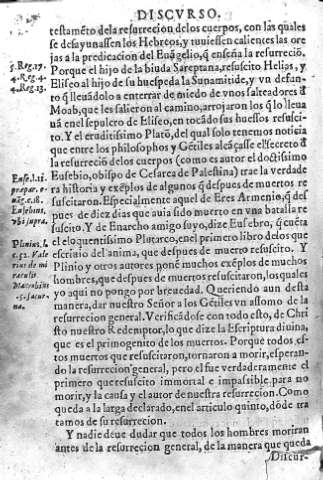 DISCVRSO.
testamẽto dela resurrecion delos cuerpos, con las quales
se desayunassen los Hebreos, y tuuiessen calientes las ore
jas a la predicacion del Euãgelio, q̃ enseña la resurreciõ.
3. Reg. 17.
Porque el hijo de la biuda Sareptana, resuscito Helias, y
4. Reg. 4.
Eliseo al hijo de su huespeda la Sunamitide, y vn defan-
4. Reg. 13.
to q̃ lleuãdolo a enterrar de miedo de vnos salteadores d̃
Moab, que les salieron al camino, arrojaron los q̃ lo lleua
uã en el sepulcro de Eliseo, en tocãdo sus huessos resusci-
to. Y el eruditissimo Platõ, del qual solo tenemos noticia
que entre los philosophos y Gẽtiles alcãçasse el secreto d̃
la resurreciõ de los cuerpos (como es autor el doctissimo
Euse. l. 11.
Eusebio, obispo de Cesarea de Palestina) trae la verda de
prepar. e-
ra historia y exẽplos de algunos q̃ despues de muertos re
uãg. c. 18.
suscitaron. Especialmente aquel de Eres Armenio, q̃ des-
Eusebius,
pues de diez dias que auia sido muerto en vna batalla re
vbi supra.
suscito. Y de Enarcho amigo suyo, dize Eusebio, q̃ cuẽta
el eloquentissimo Plutarco, en el primero libro de los que
Plinius. l.
escriuio del anima, que despues de muerto resuscito. Y
Plinio y otros autores ponẽ muchos exẽplos de muchos
hombres, que despues de muertos resuscitaron, los quales
yo aqui no pongo por breuedad. Queriendo aun desta
manera, dar nuestro Señor a los Gẽtiles vn assomo de la
resurrecion general. Verificãdose con todo esto, de Chri
sto nuestro Redemptor, lo que dize la Escriptura diuina,
que es el primogenito de los muertos. Porque todos es-
tos muertos que resuscitaron, tornaron a morir, esperan-
do la resurrecion general, pero el fue verdaderamente el
primero que resuscito immortal e impassible para no
morir, y la causa y el autor de nuestra resurrecion. Como
queda a la larga declarado, en el articulo quinto, dõde tra
tamos de su resurrecion.
Y nadie deue dudar que todos los hombres moriran
antes de la resurrecion general, de la manera que queda
Discur-